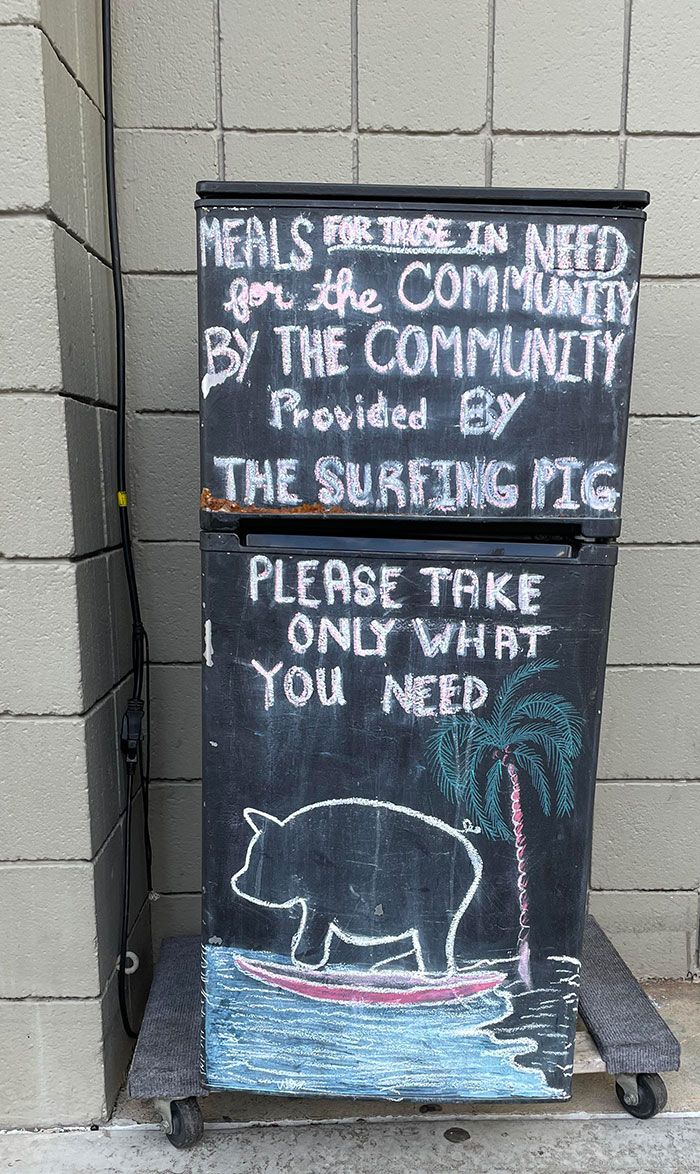 MEALS FOR THOSE IN NEED
for the COMMUNITY
BY THE COMMUNITY
Provided BY
THE SURFING PIG
PLEASE TAKE
ONLY WHAT
YOU NEED